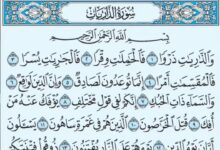 سورة الذاريات
بسم الله الرحمن الرحيم
والذاريات ذروا ١ فالحاملات وقرا ٢ فالجاريات يسرا ٣
فالمقسمات أمرا ٤ إنما توعدون لصادق ٥ وإن الدين لواقع ٦
والسماء ذات الحبك ٧ إنكم لفي قول مختلف ٨ يؤفك عنه من
أفك ٩ قتل الخراصون ١٠ الذين هم في غمرة ساهون ١١ يسئلون